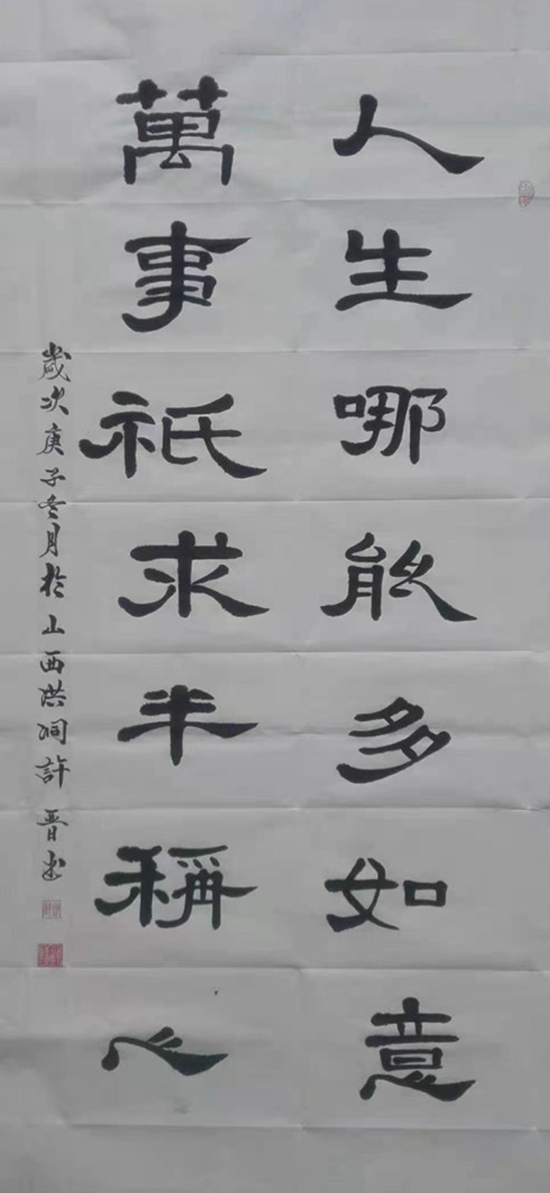 人生哪能多如意
萬事祇求半稱心
歲次庚子冬月於山西洪洞許晋书